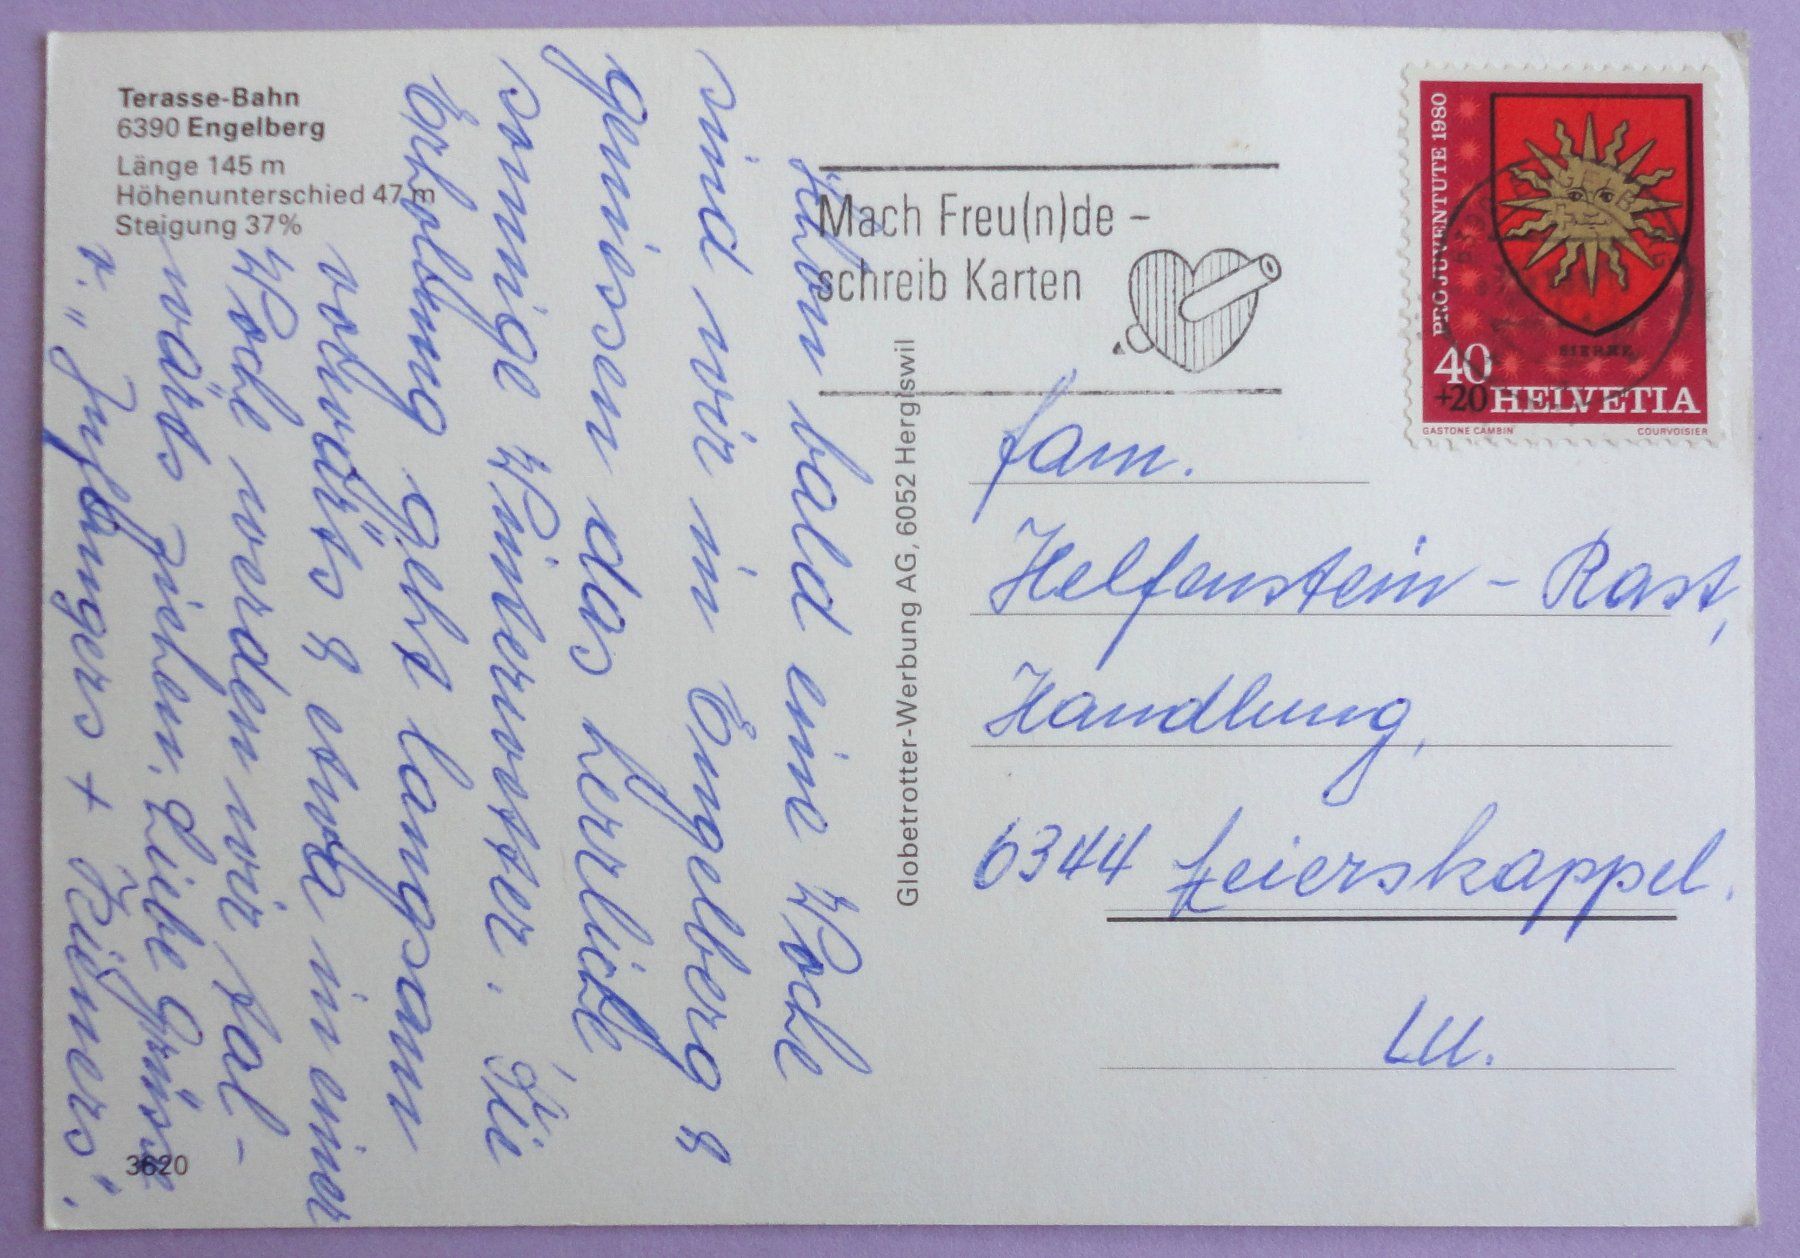 Terasse-Bahn
6390 Engelberg
Länge 145 m
Höhenunterschied 47 m
Steigung 37%
Schon bald eine Woche
sind wir in Engelberg &
geniessen das herrliche
sonnige Winterwetter. Die
Erholung geht langsam
vorwärts & etwa in einer
Woche werden wir tal-
wärts ziehen. Liebe Grüsse
v. "
3620
Globetrotter-Werbung AG, 6052 Hergiswil
Mach Freu(n)de –
schreib Karten
PRO JUVENTUTE 1980
SIERRE
40
+20 HELVETIA
GASTONE CAMBIN COURVOISIER
Fam.
Helfenstein - Rast,
Handlung,
6344 Meierskappel.
LU.